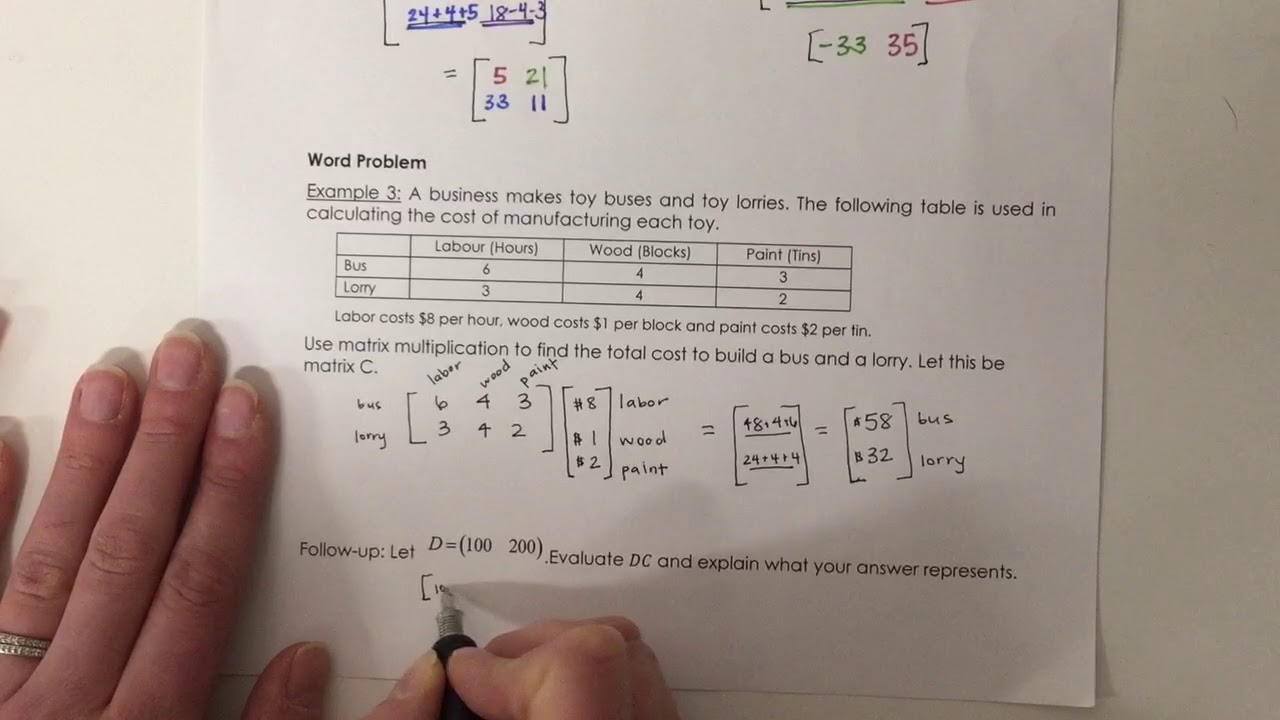 24+4+5 18-4-3
= [5 21
33 11]
[-33 35]
Word Problem
Example 3: A business makes toy buses and toy lorries. The following table is used in
calculating the cost of manufacturing each toy.
Labour (Hours) Wood (Blocks) Paint (Tins)
Bus 6 4 3
Lorry 3 4 2
Labor costs $8 per hour, wood costs $1 per block and paint costs $2 per tin.
Use matrix multiplication to find the total cost to build a bus and a lorry. Let this be
matrix C.
labor wood paint
bus [6 4 3] [$8] labor
lorry [3 4 2] [$1] wood = [48+4+6] = [$58] bus
[$2] paint [24+4+4] [$32] lorry
Follow-up: Let D=(100 200).Evaluate DC and explain what your answer represents.
[10